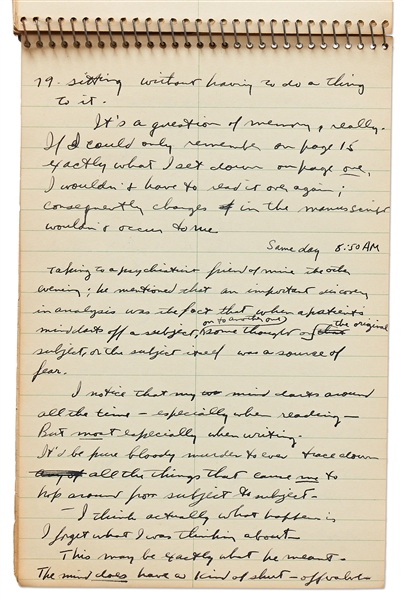 19. sitting without having to do a thing
to it.
It's a question of memory, really.
If I could only remember on page 15
exactly what I set down on page one,
I wouldn't have to read it over again;
consequently changes in the manuscript
wouldn't occur to me
Same day 8:50 AM
Talking to a psychiatrist friend of mine the other
evening; he mentioned that an important discovery
in analysis was the fact that when a patients
mind darts off a subject, on to another one, some thought of the original
subject, or the subject itself was a source of
fear.
I notice that my mind darts around
all the time – especially when reading –
But most especially when writing.
It'd be pure bloody murder to ever trace down
all the things that cause me to
hop around from subject to subject –
– I think actually what happens is
I forget what I was thinking about –
This may be exactly what he meant –
The mind does have a kind of shut-off valve